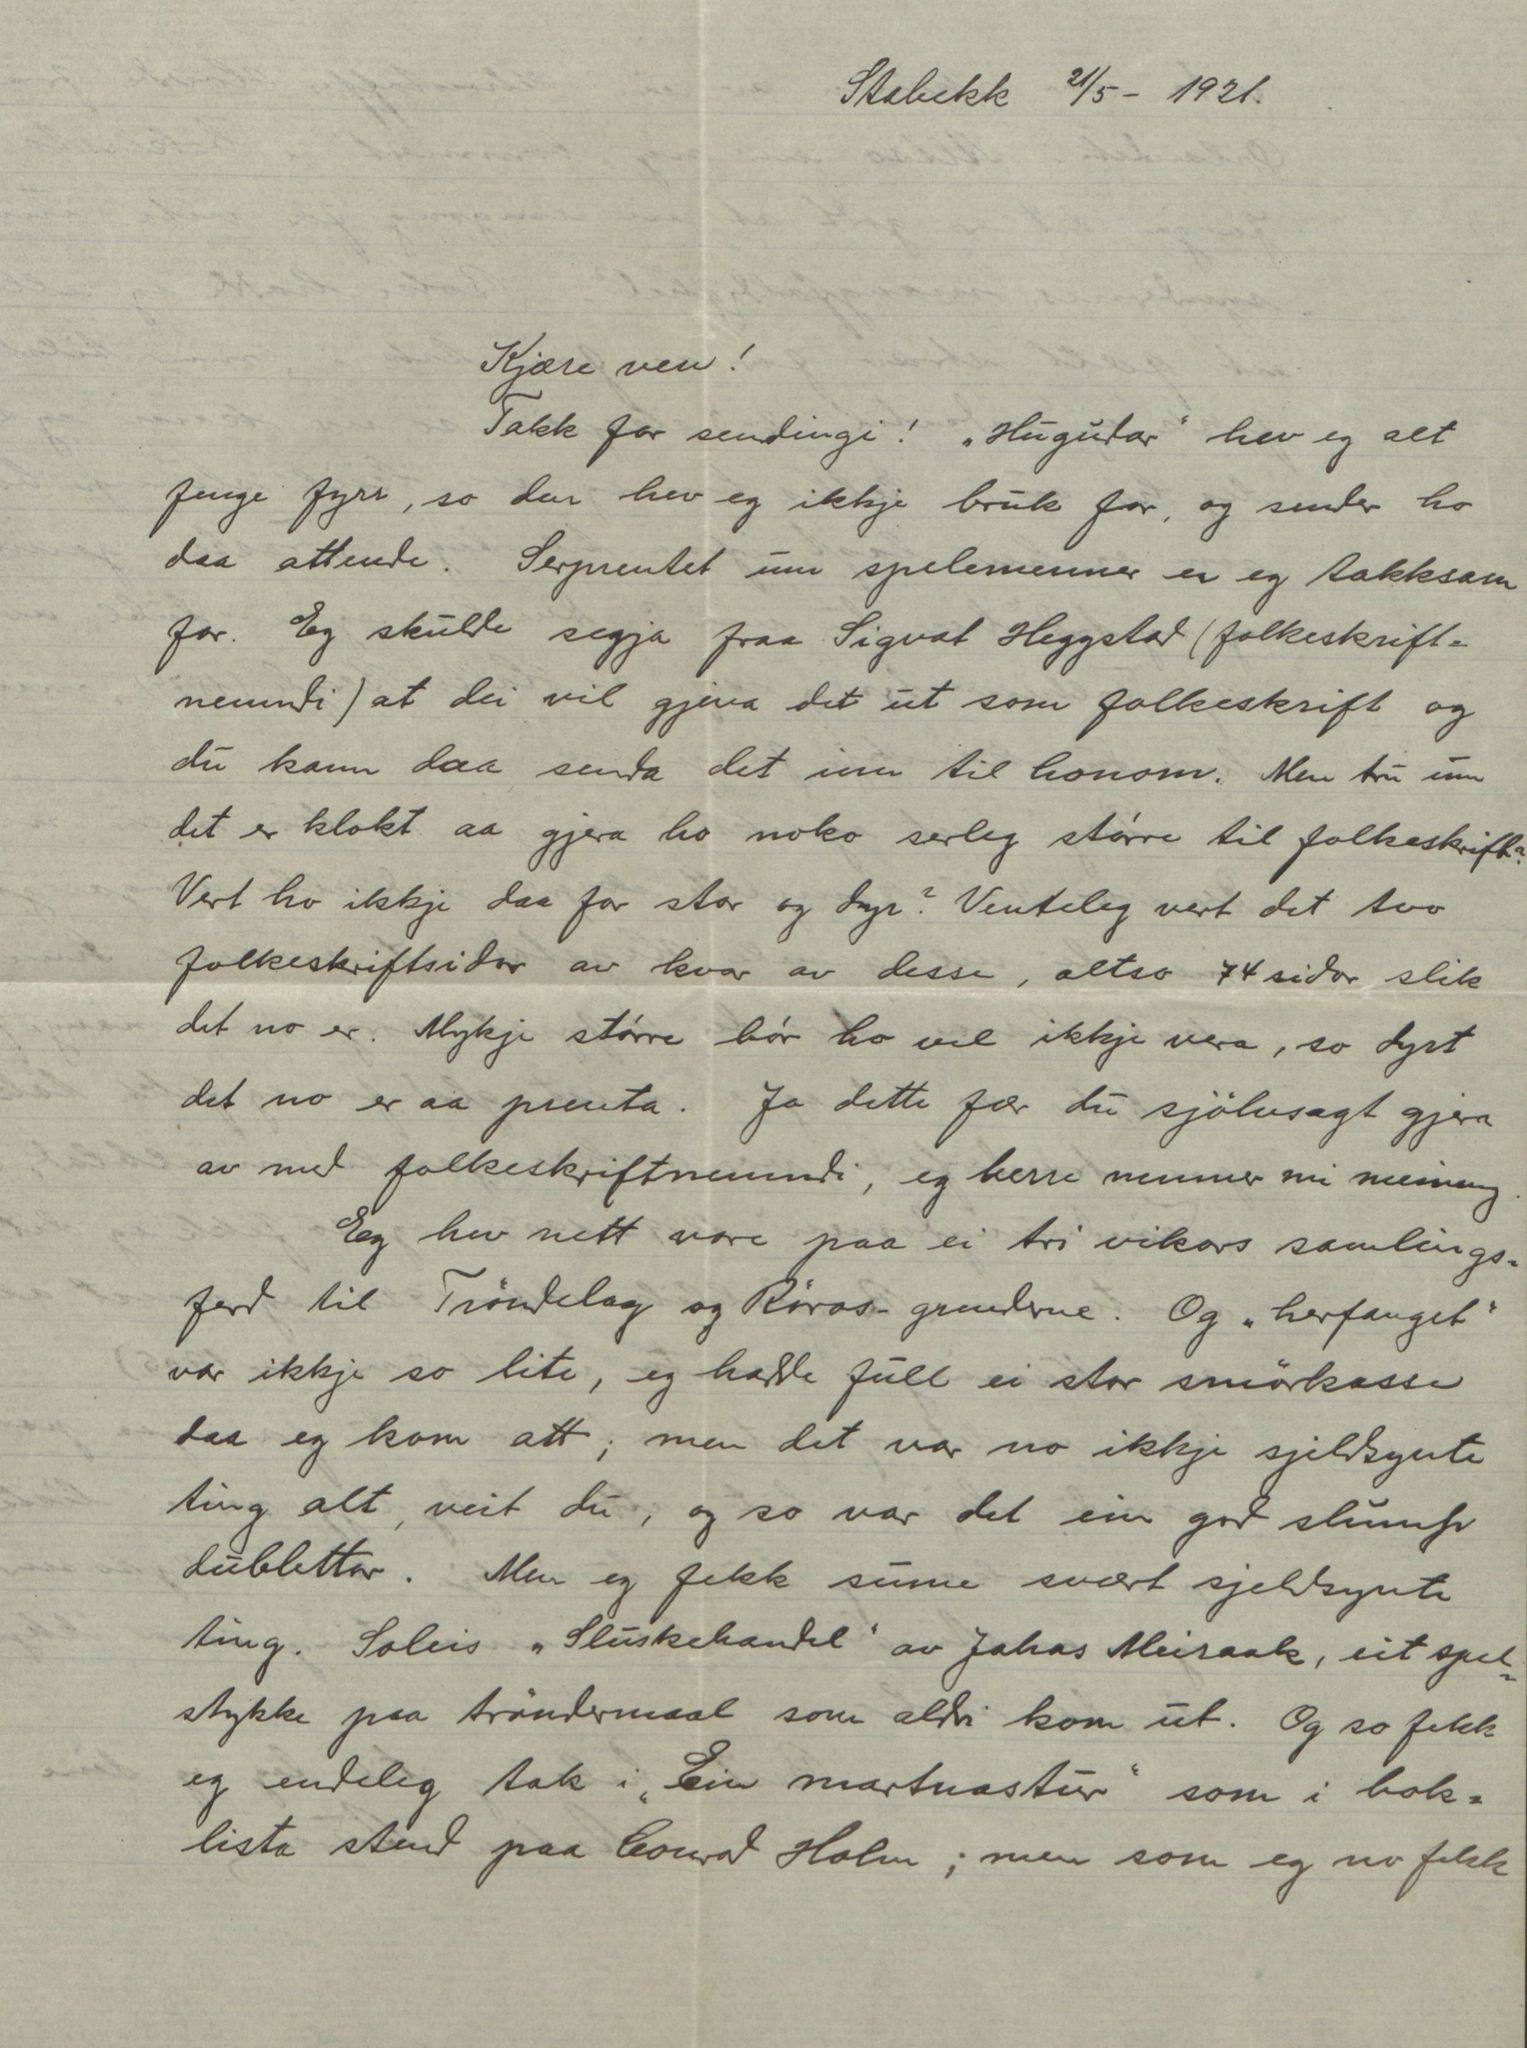 Stabekk 21/5 - 1921.
Kjære ven!
Takk for sendingi! „Hugudar" hev eg alt
fenge fyrr, so den hev eg ikkje bruk for, og sender ho
daa attende. Serprentet um spelemenner er eg takksam
for. Eg skulde segja fraa Sigvat Heggstad (folkeskrift-
nemndi) at dei vil gjeva det ut som folkeskrift og
du kann daa senda det inn til honom. Men tru um
det er klokt aa gjera ho noko serleg större til folkeskrift?
Vert ho ikkje daa for stor og dyr? Venteleg vert det two
folkeskriftsidor av kvar av desse, altso 74 sidor slik
det no er. Mykje större bör ho vel ikkje vera, so dyrt
det no er aa prenta. Ja dette fær du sjölvsagt gjera
av med folkeskriftnemndi, eg berre nemner mi meining.
Eg hev nett vore paa ei tri vikors samlings-
ferd til Tröndelag og Röros-grenderne. Og „herfanget"
var ikkje so lite, eg hadde full ei stor smörkasse
daa eg kom att; men det var no ikkje sjeldsynte
ting alt, veit du, og so var det ein god slump
dublettar. Men eg fekk sume svært sjeldsynte
ting. Soleis „Sluskehandel" av Jahas Meiraak, eit spel-
stykke paa tröndermaal som aldri kom ut. Og so fekk
eg endeleg tak i „Ein martnastur" som i bok-
lista stend paa Conrad Holm; men som eg no fekk